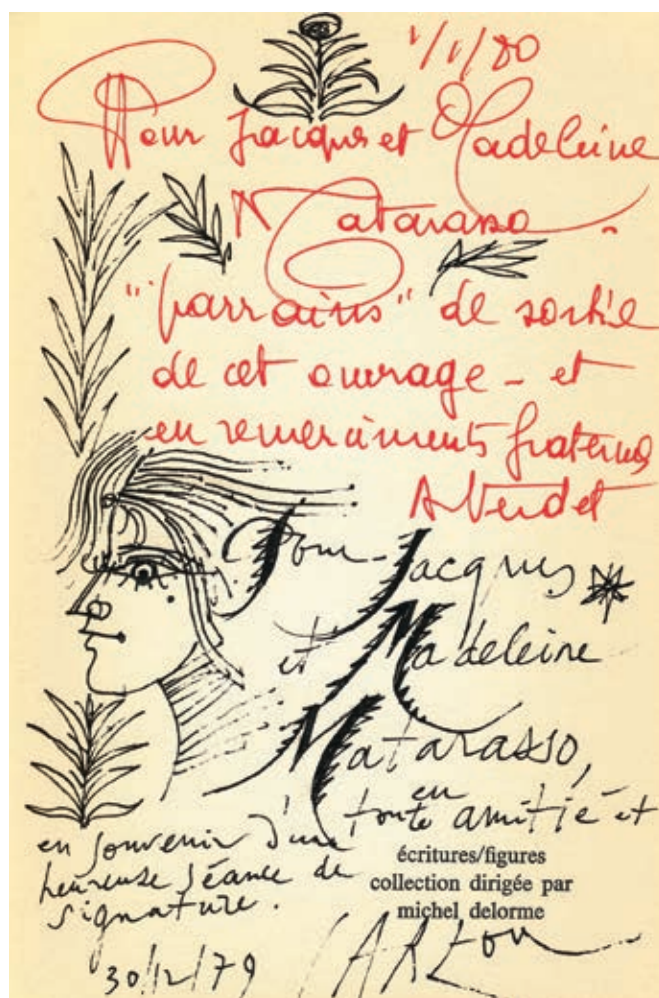 1/1/80
Pour Jacques et Madeleine
Matarasso -
"parrains" de sortie
de cet ouvrage - et
en remerciments fraternels
A Verdet
Pour Jacques
et Madeleine
Matarasso,
en toute amitié et
en souvenir d'une
heureuse séance de
signature.
écritures/figures
collection dirigée par
michel delorme
30/12/79
CARZou